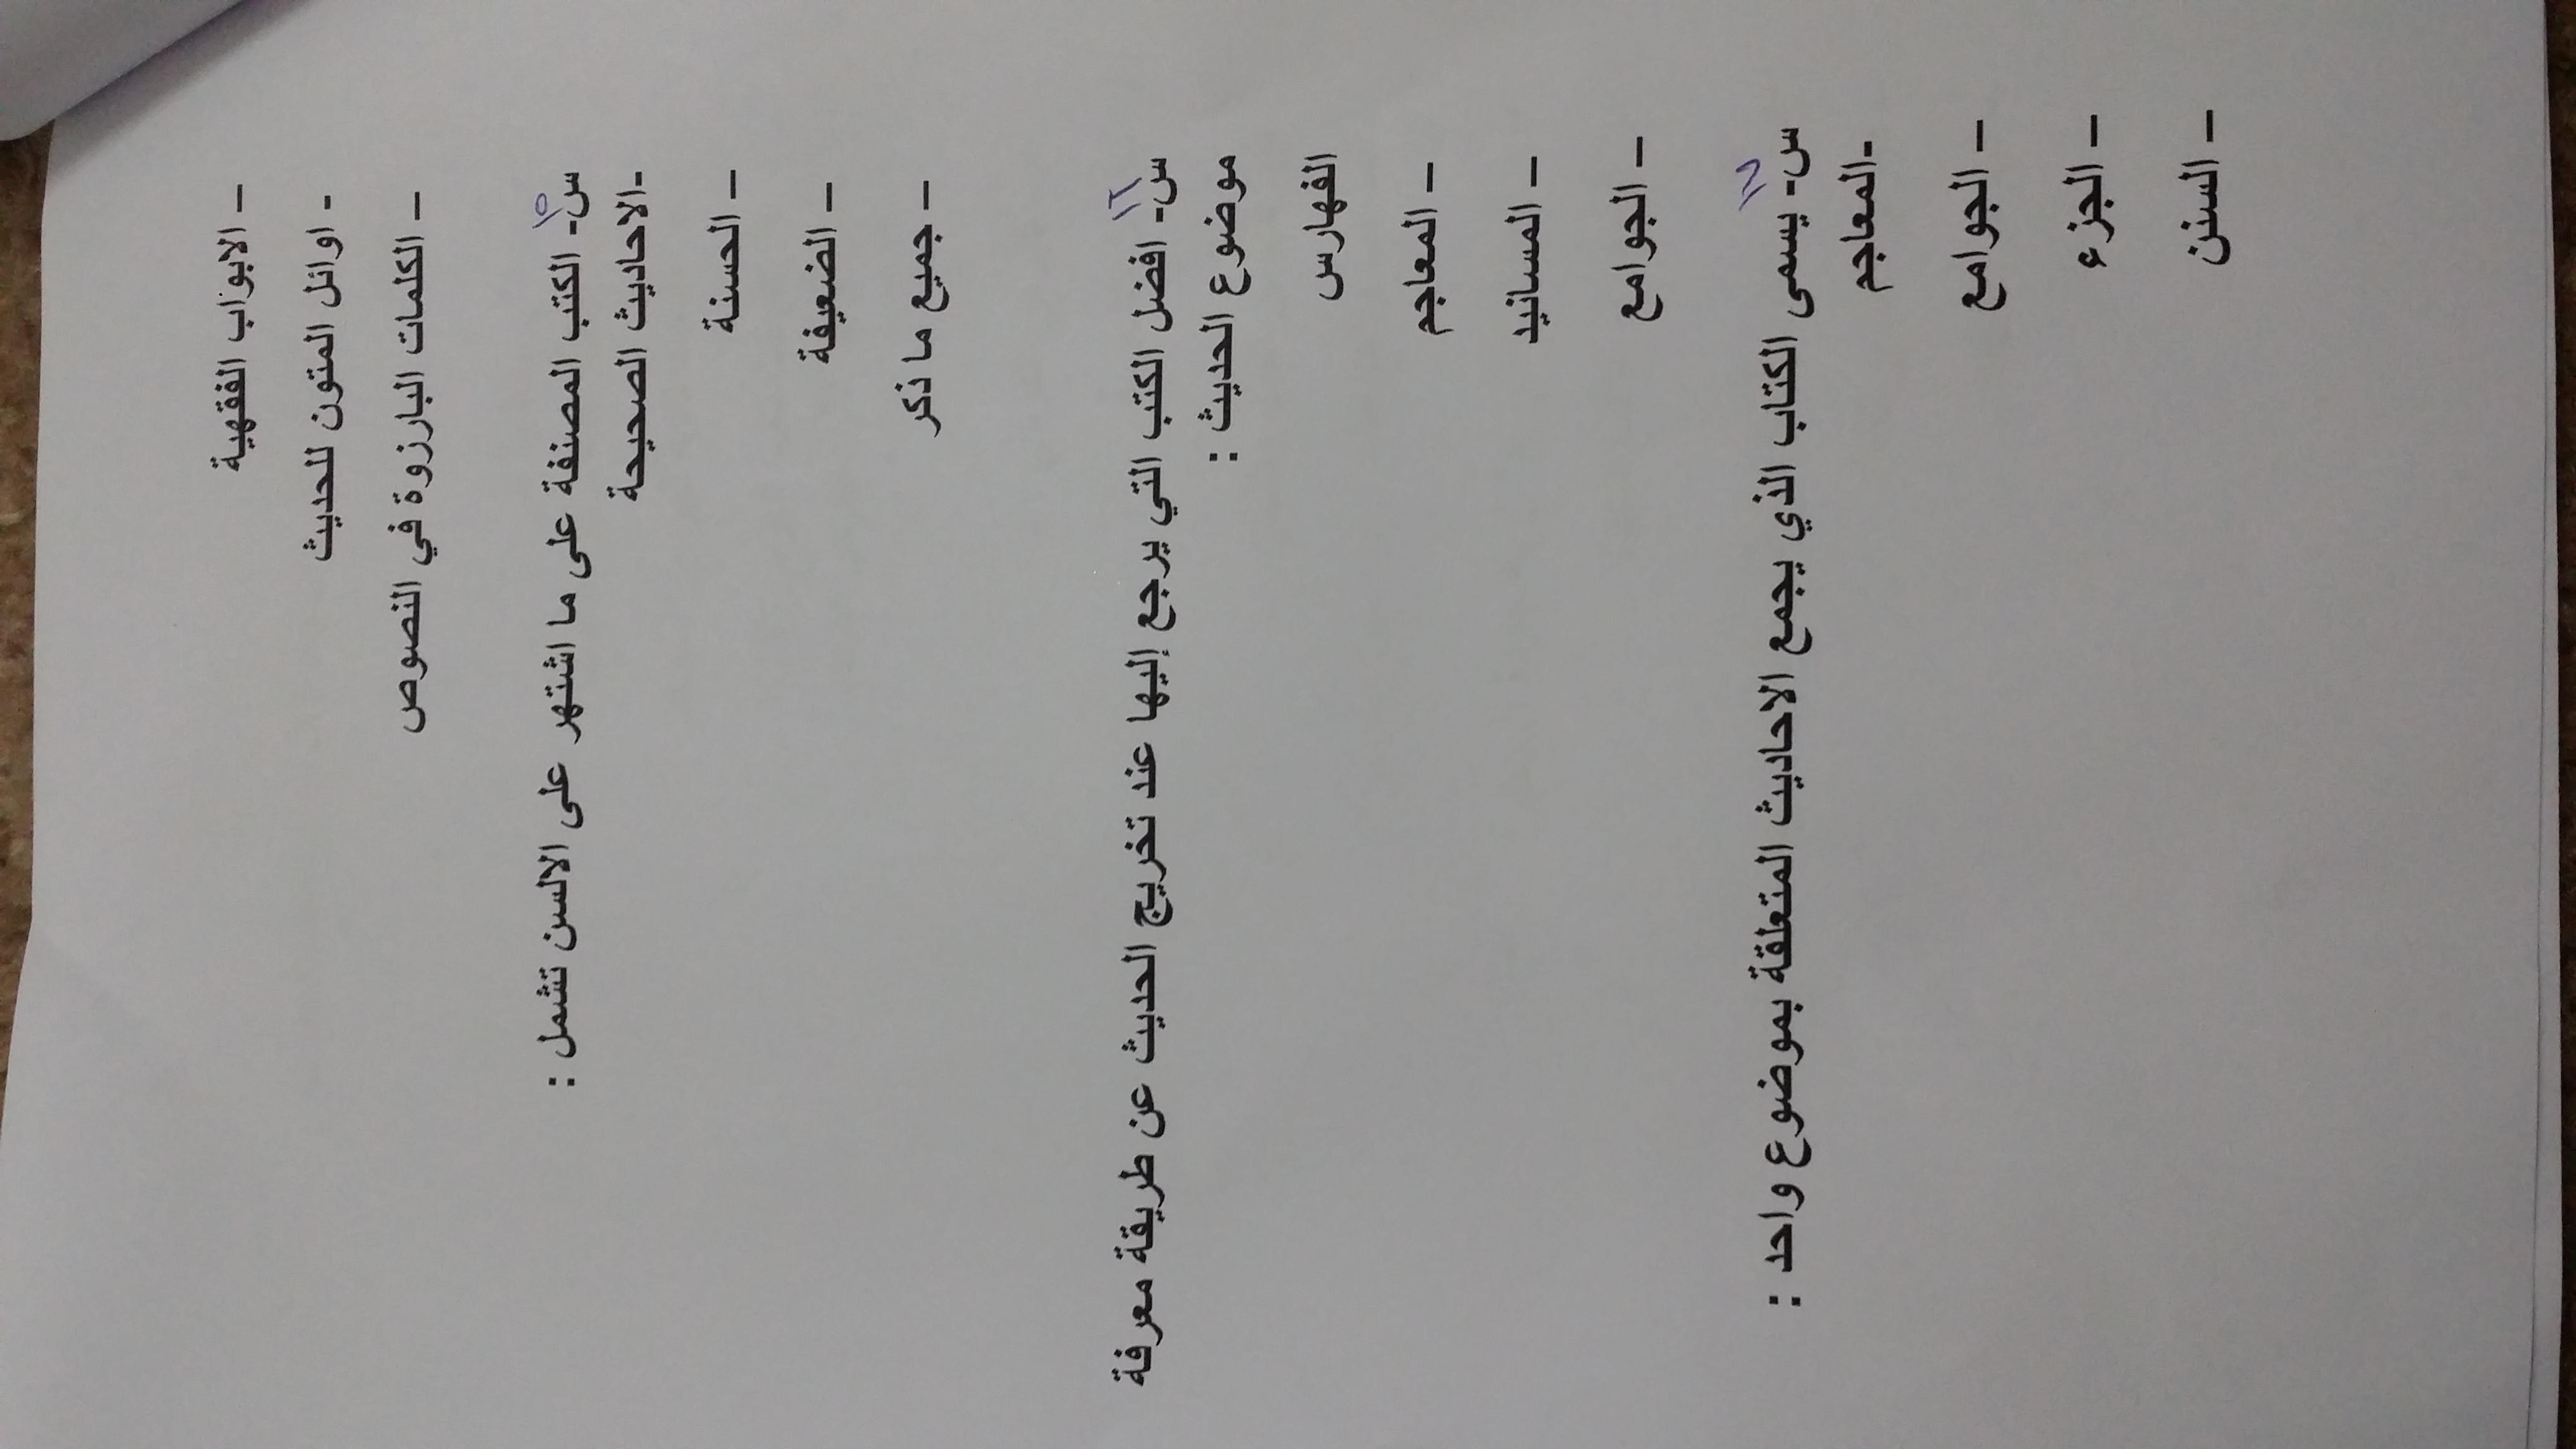 – الابواب الفقهية
- اوائل المتون للحديث
– الكلمات البارزوة في النصوص
س١٥- الكتب المصنفة على ما اشتهر على الالسن تشمل :
-الاحاديث الصحيحة
– الحسنة
– الضعيفة
– جميع ما ذكر
س١٦- افضل الكتب التي يرجع إليها عند تخريج الحديث عن طريقة معرفة
موضوع الحديث :
الفهارس
– المعاجم
– المسانيد
– الجوامع
س- يسمى الكتاب الذي يجمع الاحاديث المتعلقة بموضوع واحد :
-المعاجم
– الجوامع
– الجزء
– السنن